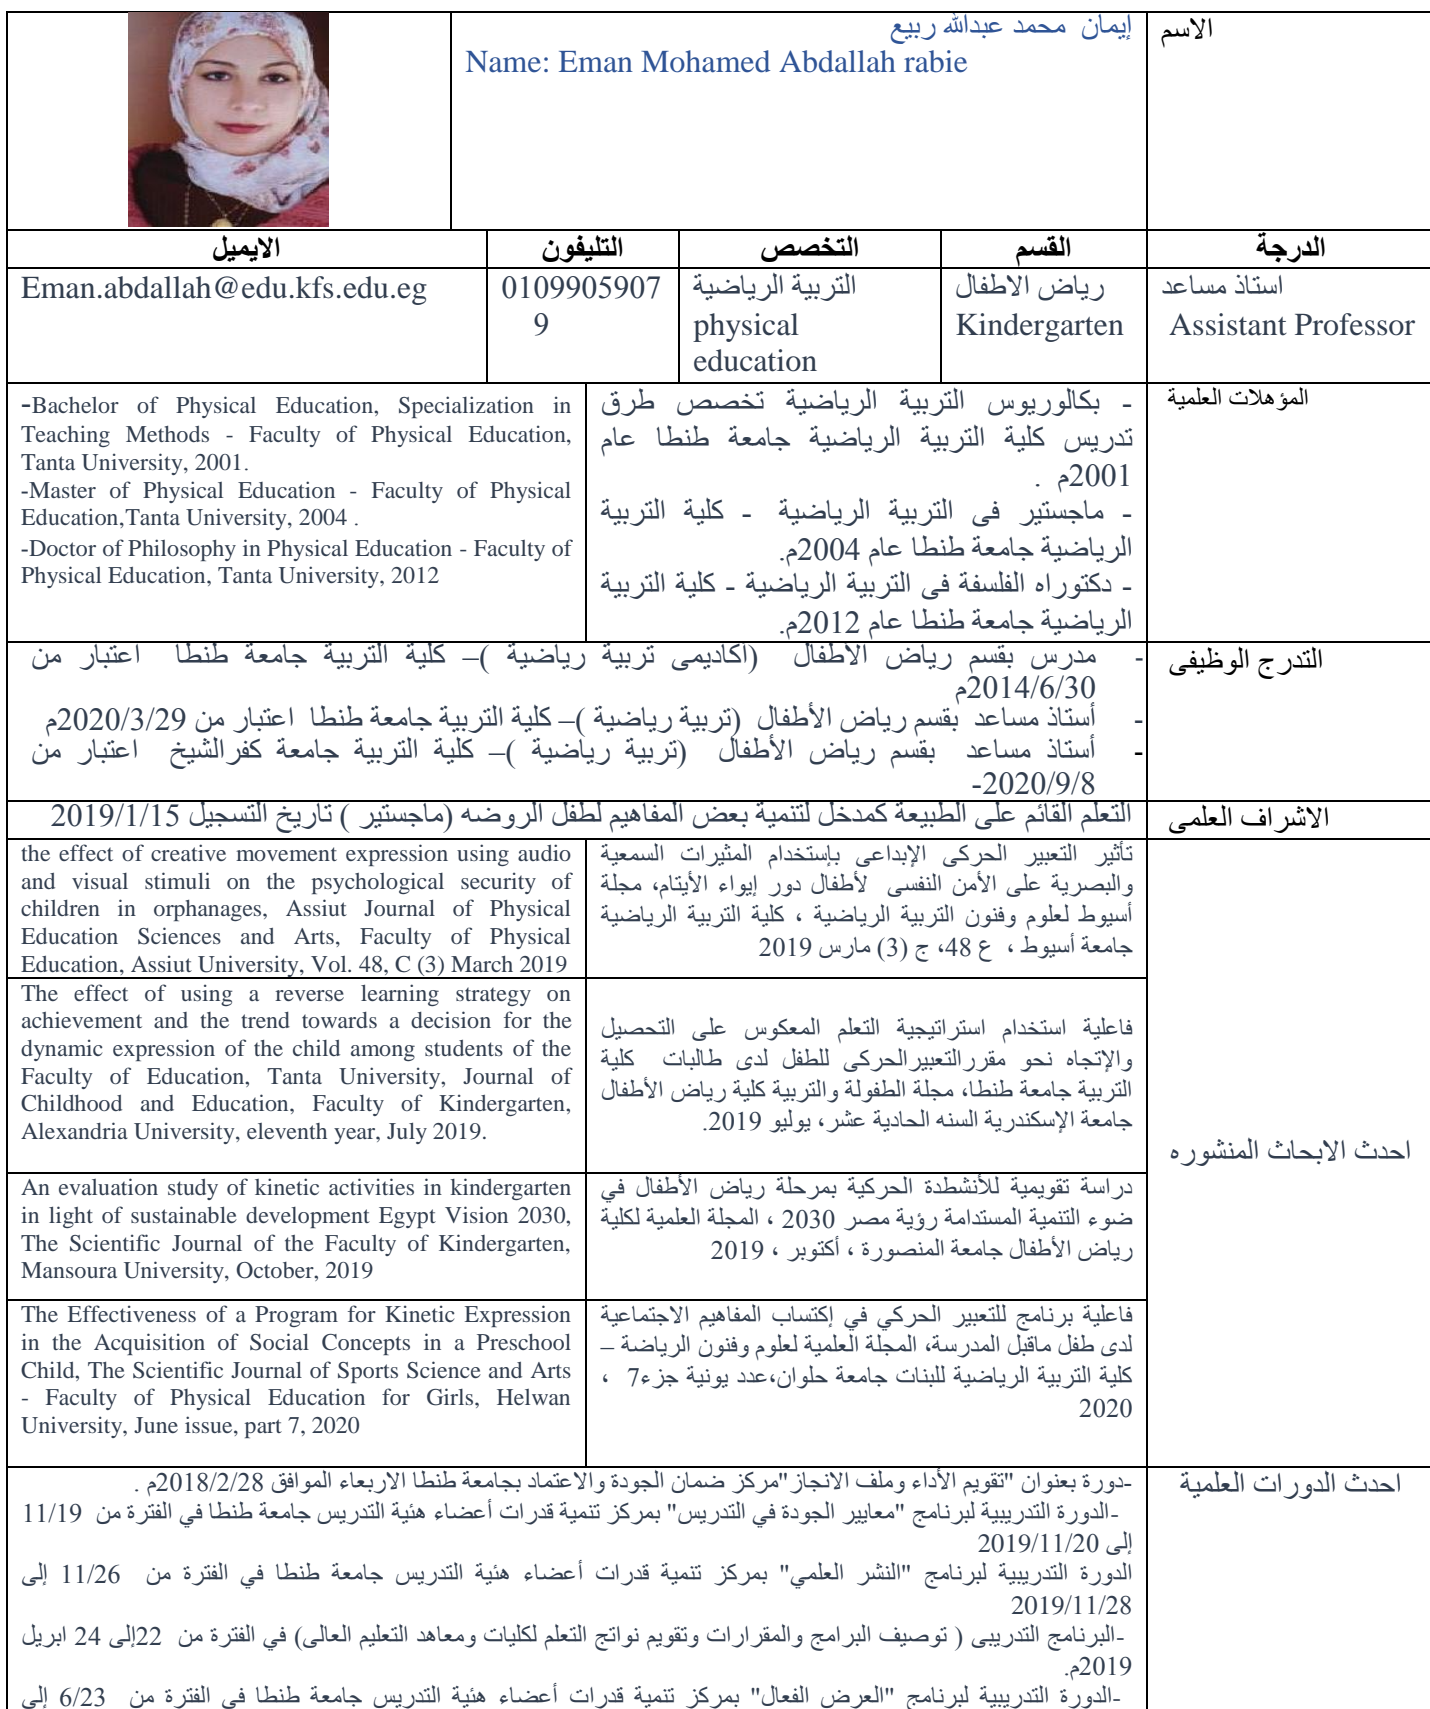 الاسم
إيمان محمد عبدالله ربيع
Name: Eman Mohamed Abdallah rabie
الدرجة
القسم
التخصص
التليفون
الايميل
استاذ مساعد
Assistant Professor
رياض الاطفال
Kindergarten
التربية الرياضية
physical
education
0109905907
9
Eman.abdallah@edu.kfs.edu.eg
المؤهلات العلمية
- بكالوريوس التربية الرياضية تخصص طرق
تدريس كلية التربية الرياضية جامعة طنطا عام
2001م .
- ماجستير فى التربية الرياضية - كلية التربية
الرياضية جامعة طنطا عام 2004م.
- دكتوراه الفلسفة فى التربية الرياضية - كلية التربية
الرياضية جامعة طنطا عام 2012م.
-Bachelor of Physical Education, Specialization in
Teaching Methods - Faculty of Physical Education,
Tanta University, 2001.
-Master of Physical Education - Faculty of Physical
Education,Tanta University, 2004 .
-Doctor of Philosophy in Physical Education - Faculty of
Physical Education, Tanta University, 2012
التدرج الوظيفى
- مدرس بقسم رياض الأطفال (أكاديمى تربية رياضية )– كلية التربية جامعة طنطا اعتبار من
2014/6/30م
- أستاذ مساعد بقسم رياض الأطفال (تربية رياضية )– كلية التربية جامعة طنطا اعتبار من 2020/3/29م
- أستاذ مساعد بقسم رياض الأطفال (تربية رياضية )– كلية التربية جامعة كفرالشيخ اعتبار من
2020/9/8-
الاشراف العلمى
التعلم القائم على الطبيعة كمدخل لتنمية بعض المفاهيم لطفل الروضه (ماجستير ) تاريخ التسجيل 2019/1/15
احدث الابحاث المنشوره
تأثير التعبير الحركى الإبداعى بإستخدام المثيرات السمعية
والبصرية على الأمن النفسى لأطفال دور إيواء الأيتام، مجلة
أسيوط لعلوم وفنون التربية الرياضية ، كلية التربية الرياضية
جامعة أسيوط ، ع 48، ج (3) مارس 2019
the effect of creative movement expression using audio
and visual stimuli on the psychological security of
children in orphanages, Assiut Journal of Physical
Education Sciences and Arts, Faculty of Physical
Education, Assiut University, Vol. 48, C (3) March 2019
فاعلية استخدام استراتيجية التعلم المعكوس على التحصيل
والإتجاه نحو مقررالتعبيرالحركى للطفل لدى طالبات كلية
التربية جامعة طنطا، مجلة الطفولة والتربية كلية رياض الأطفال
جامعة الإسكندرية السنه الحادية عشر، يوليو 2019.
The effect of using a reverse learning strategy on
achievement and the trend towards a decision for the
dynamic expression of the child among students of the
Faculty of Education, Tanta University, Journal of
Childhood and Education, Faculty of Kindergarten,
Alexandria University, eleventh year, July 2019.
دراسة تقويمية للأنشطدة الحركية بمرحلة رياض الأطفال في
ضوء التنمية المستدامة رؤية مصر 2030 ، المجلة العلمية لكلية
رياض الأطفال جامعة المنصورة ، أكتوبر ، 2019
An evaluation study of kinetic activities in kindergarten
in light of sustainable development Egypt Vision 2030,
The Scientific Journal of the Faculty of Kindergarten,
Mansoura University, October, 2019
فاعلية برنامج للتعبير الحركي في إكتساب المفاهيم الاجتماعية
لدى طفل ماقبل المدرسة، المجلة العلمية لعلوم وفنون الرياضة –
كلية التربية الرياضية للبنات جامعة حلوان،عدد يونية جزء7 ،
2020
The Effectiveness of a Program for Kinetic Expression
in the Acquisition of Social Concepts in a Preschool
Child, The Scientific Journal of Sports Science and Arts
- Faculty of Physical Education for Girls, Helwan
University, June issue, part 7, 2020
احدث الدورات العلمية
-دورة بعنوان "تقويم الأداء وملف الانجاز"مركز ضمان الجودة والاعتماد بجامعة طنطا الاربعاء الموافق 2018/2/28م .
-الدورة التدريبية لبرنامج "معايير الجودة في التدريس" بمركز تنمية قدرات أعضاء هئية التدريس جامعة طنطا في الفترة من 11/19
إلى 2019/11/20
الدورة التدريبية لبرنامج "النشر العلمي" بمركز تنمية قدرات أعضاء هئية التدريس جامعة طنطا في الفترة من 11/26 إلى
2019/11/28
-البرنامج التدريبى ( توصيف البرامج والمقرارات وتقويم نواتج التعلم لكليات ومعاهد التعليم العالى) في الفترة من 22إلى 24 ابريل
2019م.
-الدورة التدريبية لبرنامج "العرض الفعال" بمركز تنمية قدرات أعضاء هئية التدريس جامعة طنطا في الفترة من 6/23 إلى